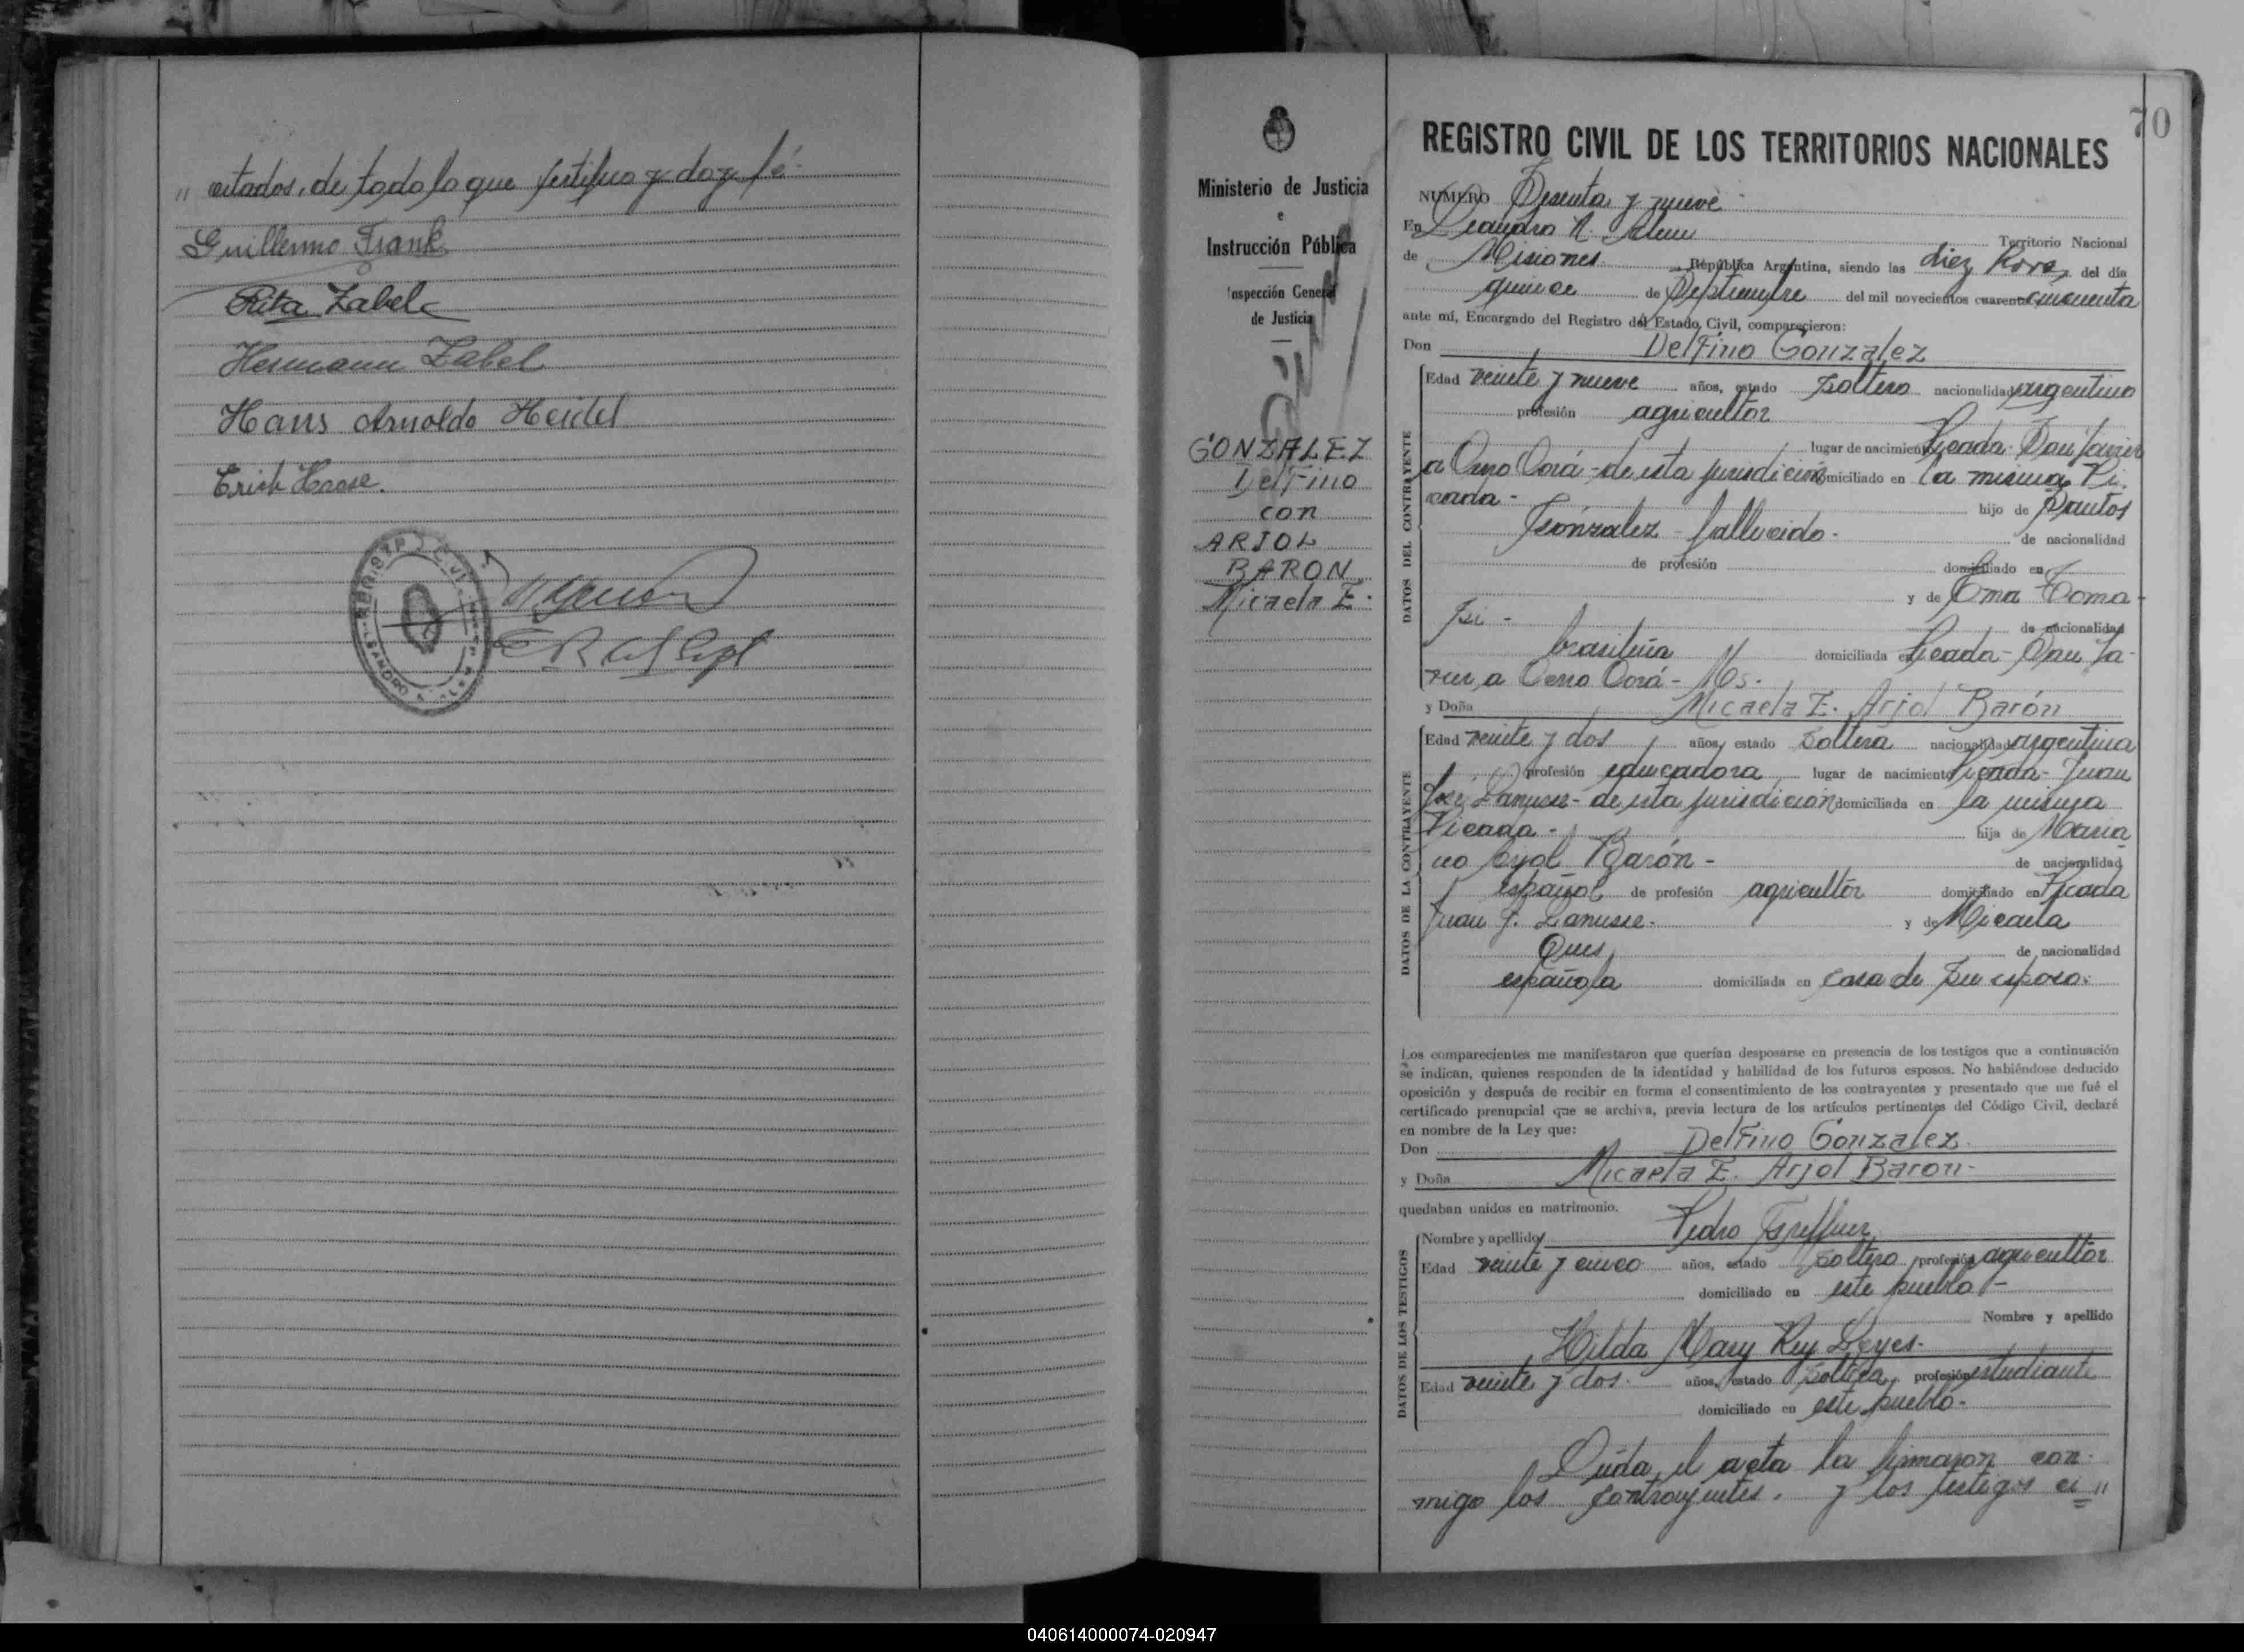 " citados, de todo lo que certifico y doy fé-
Guillermo Frank
Rita Zabel
Hermann Zabel
Hans Arnoldo Heidel
Erich Haase.
REGISTRO CIVIL
LEANDRO N. ALEM
70
Ministerio de Justicia
e
Instrucción Pública
Inspección General
de Justicia
GONZALEZ
Delfino
con
ARJOL
BARON
Micaela E.
REGISTRO CIVIL DE LOS TERRITORIOS NACIONALES
NUMERO Sesenta y nueve
En Leandro N. Alem Territorio Nacional
de Misiones República Argentina, siendo las diez horas, del día
quince de Septiembre del mil novecientos cuarenta cincuenta
ante mí, Encargado del Registro del Estado Civil, comparecieron:
Don Delfino Gonzalez
DATOS DEL CONTRAYENTE
Edad veinte y nueve años, estado soltero nacionalidad argentino
profesión agricultor
lugar de nacimiento Picada San Javier
a Cerro Corá - de esta jurisdicción domiciliado en la misma Pi-
cada - hijo de Santos
González - fallecido - de nacionalidad
de profesión domiciliado en
y de Toma-
de nacionalidad
brasileña domiciliada en Picada - San Ja-
vier a Cerro Corá - Mos.
y Doña Micaela E. Arjol Barón
DATOS DE LA CONTRAYENTE
Edad veinte y dos años, estado soltera nacionalidad argentina
profesión educadora lugar de nacimiento Picada - Juan
José Lanusse - de esta jurisdicción domiciliada en la misma
Picada - hija de Maria-
no Arjol Barón - de nacionalidad
español de profesión agricultor domiciliado en Picada
Juan J. Lanusse - y de Micaela
de nacionalidad
española domiciliada en casa de su esposo.
Los comparecientes me manifestaron que querían desposarse en presencia de los testigos que a continuación
se indican, quienes responden de la identidad y habilidad de los futuros esposos. No habiéndose deducido
oposición y después de recibir en forma el consentimiento de los contrayentes y presentado que me fué el
certificado prenupcial que se archiva, previa lectura de los artículos pertinentes del Código Civil, declaré
en nombre de la Ley que:
Don Delfino Gonzalez.
y Doña Micaela E. Arjol Baron-
quedaban unidos en matrimonio.
DATOS DE LOS TESTIGOS
Nombre y apellido Pedro
Edad veinte y cinco años, estado soltero profesión agricultor
domiciliado en este pueblo -
Nombre y apellido
Hilda Mary Rey Leyes -
Edad veinte y dos - años, estado soltera, profesión estudiante
domiciliado en este pueblo -
Leída el acta la firmaron con-
migo los contrayentes, y los testigos ci "
040614000074-020947